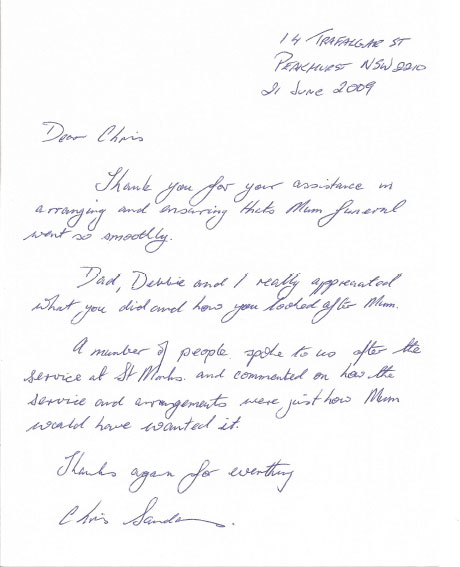 14 TRAFALGAR ST
PEAKHURST NSW 2210
21 JUNE 2009
Dear Chris
Thank you for your assistance in
arranging and ensuring thats Mum funeral
went so smoothly.
Dad, Debbie and I really appreciated
what you did and how you looked after Mum.
A number of people spoke to us after the
service at St Marks. and commented on how the
service and arrangements were just how Mum
would have wanted it.
Thanks again for everthing
Chris